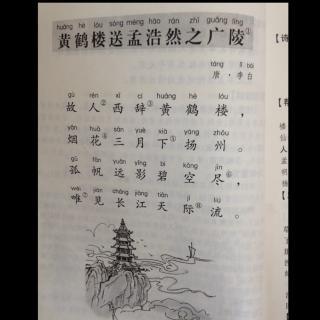 huáng hè lóu sòng mèng hào rán zhī guǎng líng
黄鹤楼送孟浩然之广陵①
táng lǐ bái
唐·李白
gù rén xī cí huáng hè lóu
故人②西辞③黄鹤楼，
yān huā sān yuè xià yáng zhōu
烟花④三月下⑤扬州。
gū fān yuǎn yǐng bì kōng jìn
孤帆远影碧空尽⑥，
wéi jiàn cháng jiāng tiān jì liú
唯⑦见长江天际⑧流。